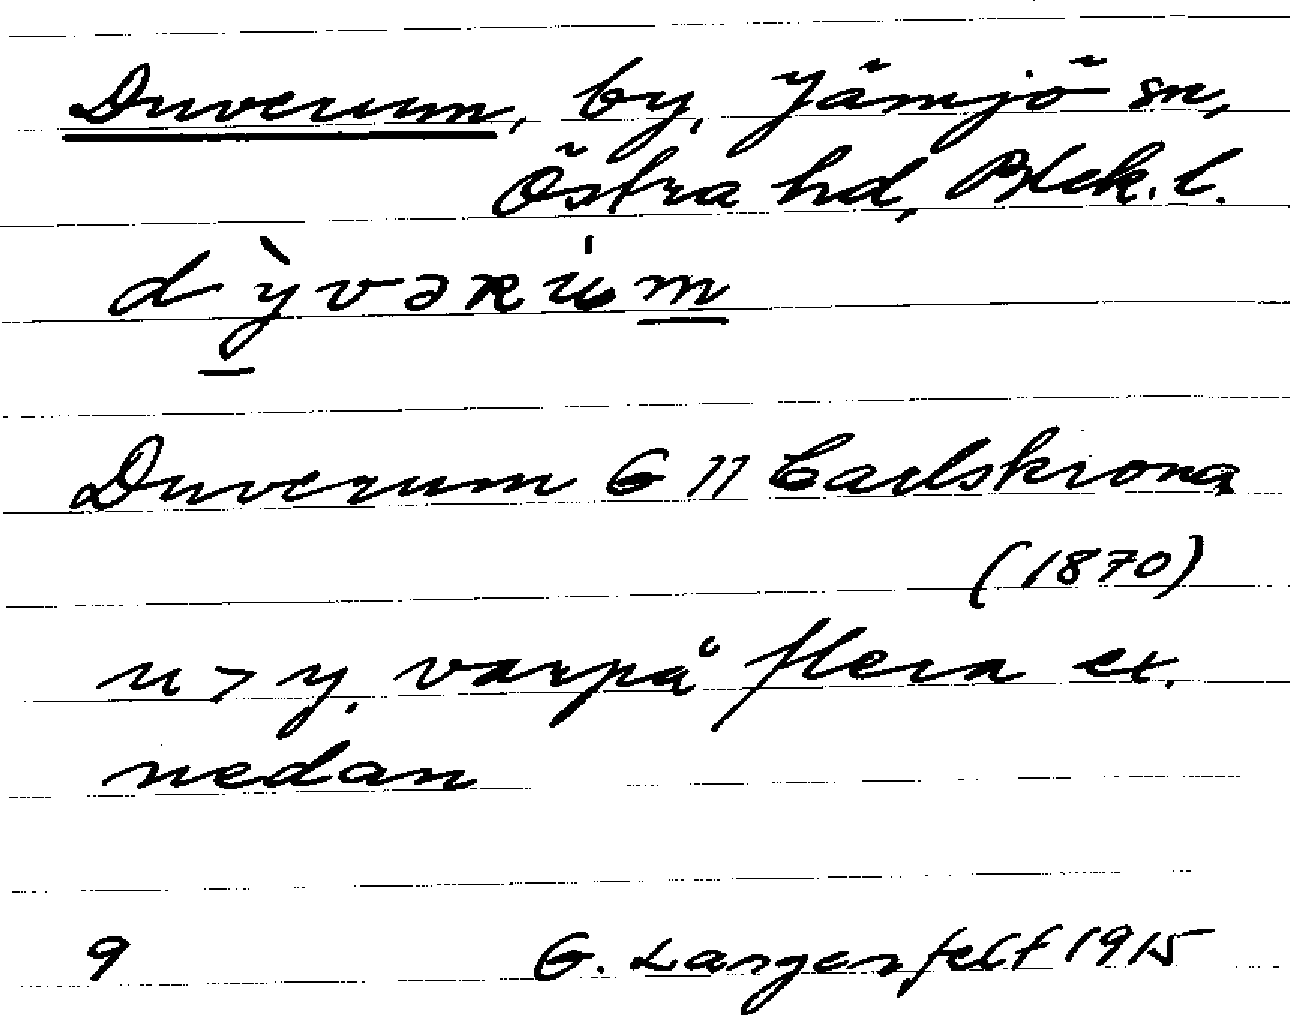 Duverum, by, Jämjö sn,
Östra hd, Blek. l.
dỳvərúm
Duverum G 11 Carlskrona
(1870)
u > y, varpå flera ex.
nedan
9 G. Langenfelt 1915